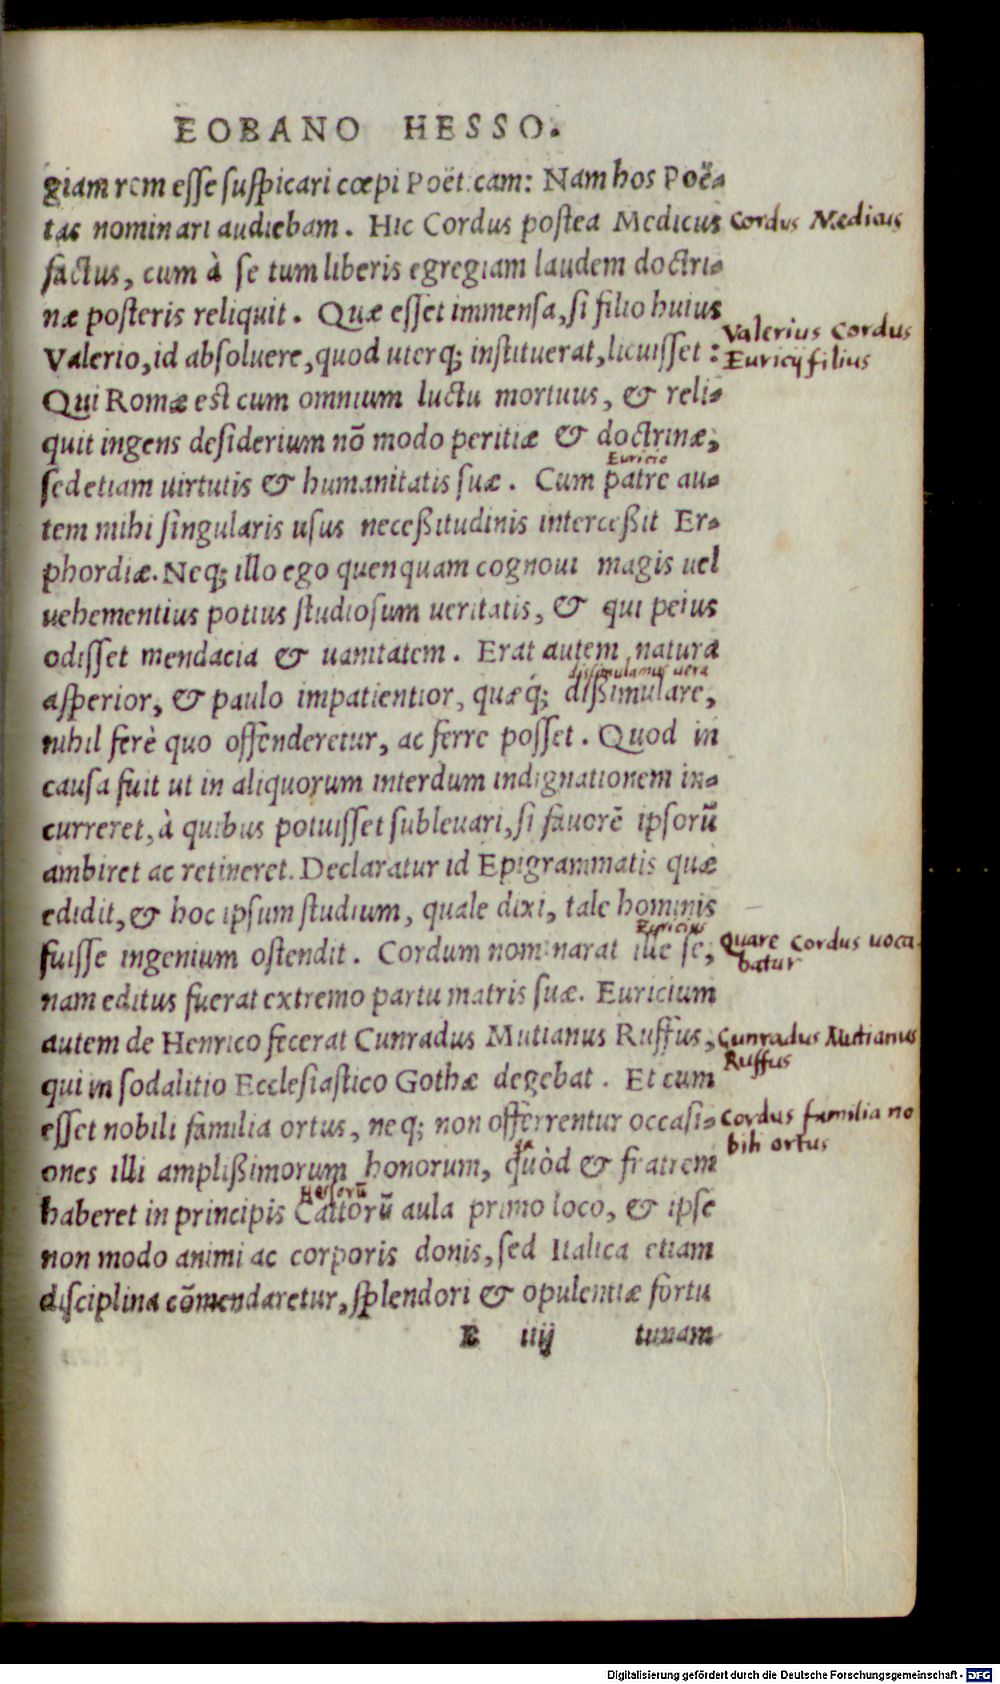 EOBANO HESSO.
giam rem esse suspicari cœpi Poëticam: Nam hos Poë-
tas nominari audiebam. Hic Cordus postea Medicus
Cordus Medicus
factus, cum à se tum liberis egregiam laudem doctri-
næ posteris reliquit. Quæ esset immensa, si filio huius
Valerio, id absoluere, quod uterq; instituerat, licuisset:
Valerius Cordus
Euricij filius
Qui Romæ est cum omnium luctu mortuus, & reli-
quit ingens desiderium nō modo peritiæ & doctrinæ,
sed etiam uirtutis & humanitatis suæ. Cum patre au-
Euricio
tem mihi singularis usus neceßitudinis interceßit Er-
phordiæ. Neq; illo ego quenquam cognoui magis uel
uehementius potius studiosum ueritatis, & qui peius
odisset mendacia & uanitatem. Erat autem natura
asperior, & paulo impatientior, quæq́; dißimulare,
dissimulamus uera
nihil ferè quo offenderetur, ac ferre posset. Quod in
causa fuit ut in aliquorum interdum indignationem in-
curreret, à quibus potuisset subleuari, si fauorē ipsorū
ambiret ac retineret. Declaratur id Epigrammatis quæ
edidit, & hoc ipsum studium, quale dixi, tale hominis
fuisse ingenium ostendit. Cordum nominarat ille se,
Euricius
Quare Cordus uoca
batur
nam editus fuerat extremo partu matris suæ. Euricium
autem de Henrico fecerat Cunradus Mutianus Ruffus,
Cunradus Mutianus
Ruffus
qui in sodalitio Ecclesiastico Gothæ degebat. Et cum
esset nobili familia ortus, neq; non offerrentur occasi-
Cordus familia no
bili ortus
ones illi amplißimorum honorum, quòd & fratrem
haberet in principis Cattorū aula primo loco, & ipse
Hessorū
non modo animi ac corporis donis, sed Italica etiam
disciplina cōmendaretur, splendori & opulentiæ fortu
E iiij tunam
Digitalisierung gefördert durch die Deutsche Forschungsgemeinschaft - DFG